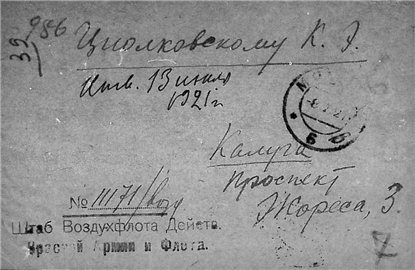 986
32
Циолковскому К. Э.
13 июля
1921 г.
Калуга
проспект
Жореса, 3.
№ 11171/возд
Штаб Воздухфлота Действ.
Красной Армии и Флота.
6
7